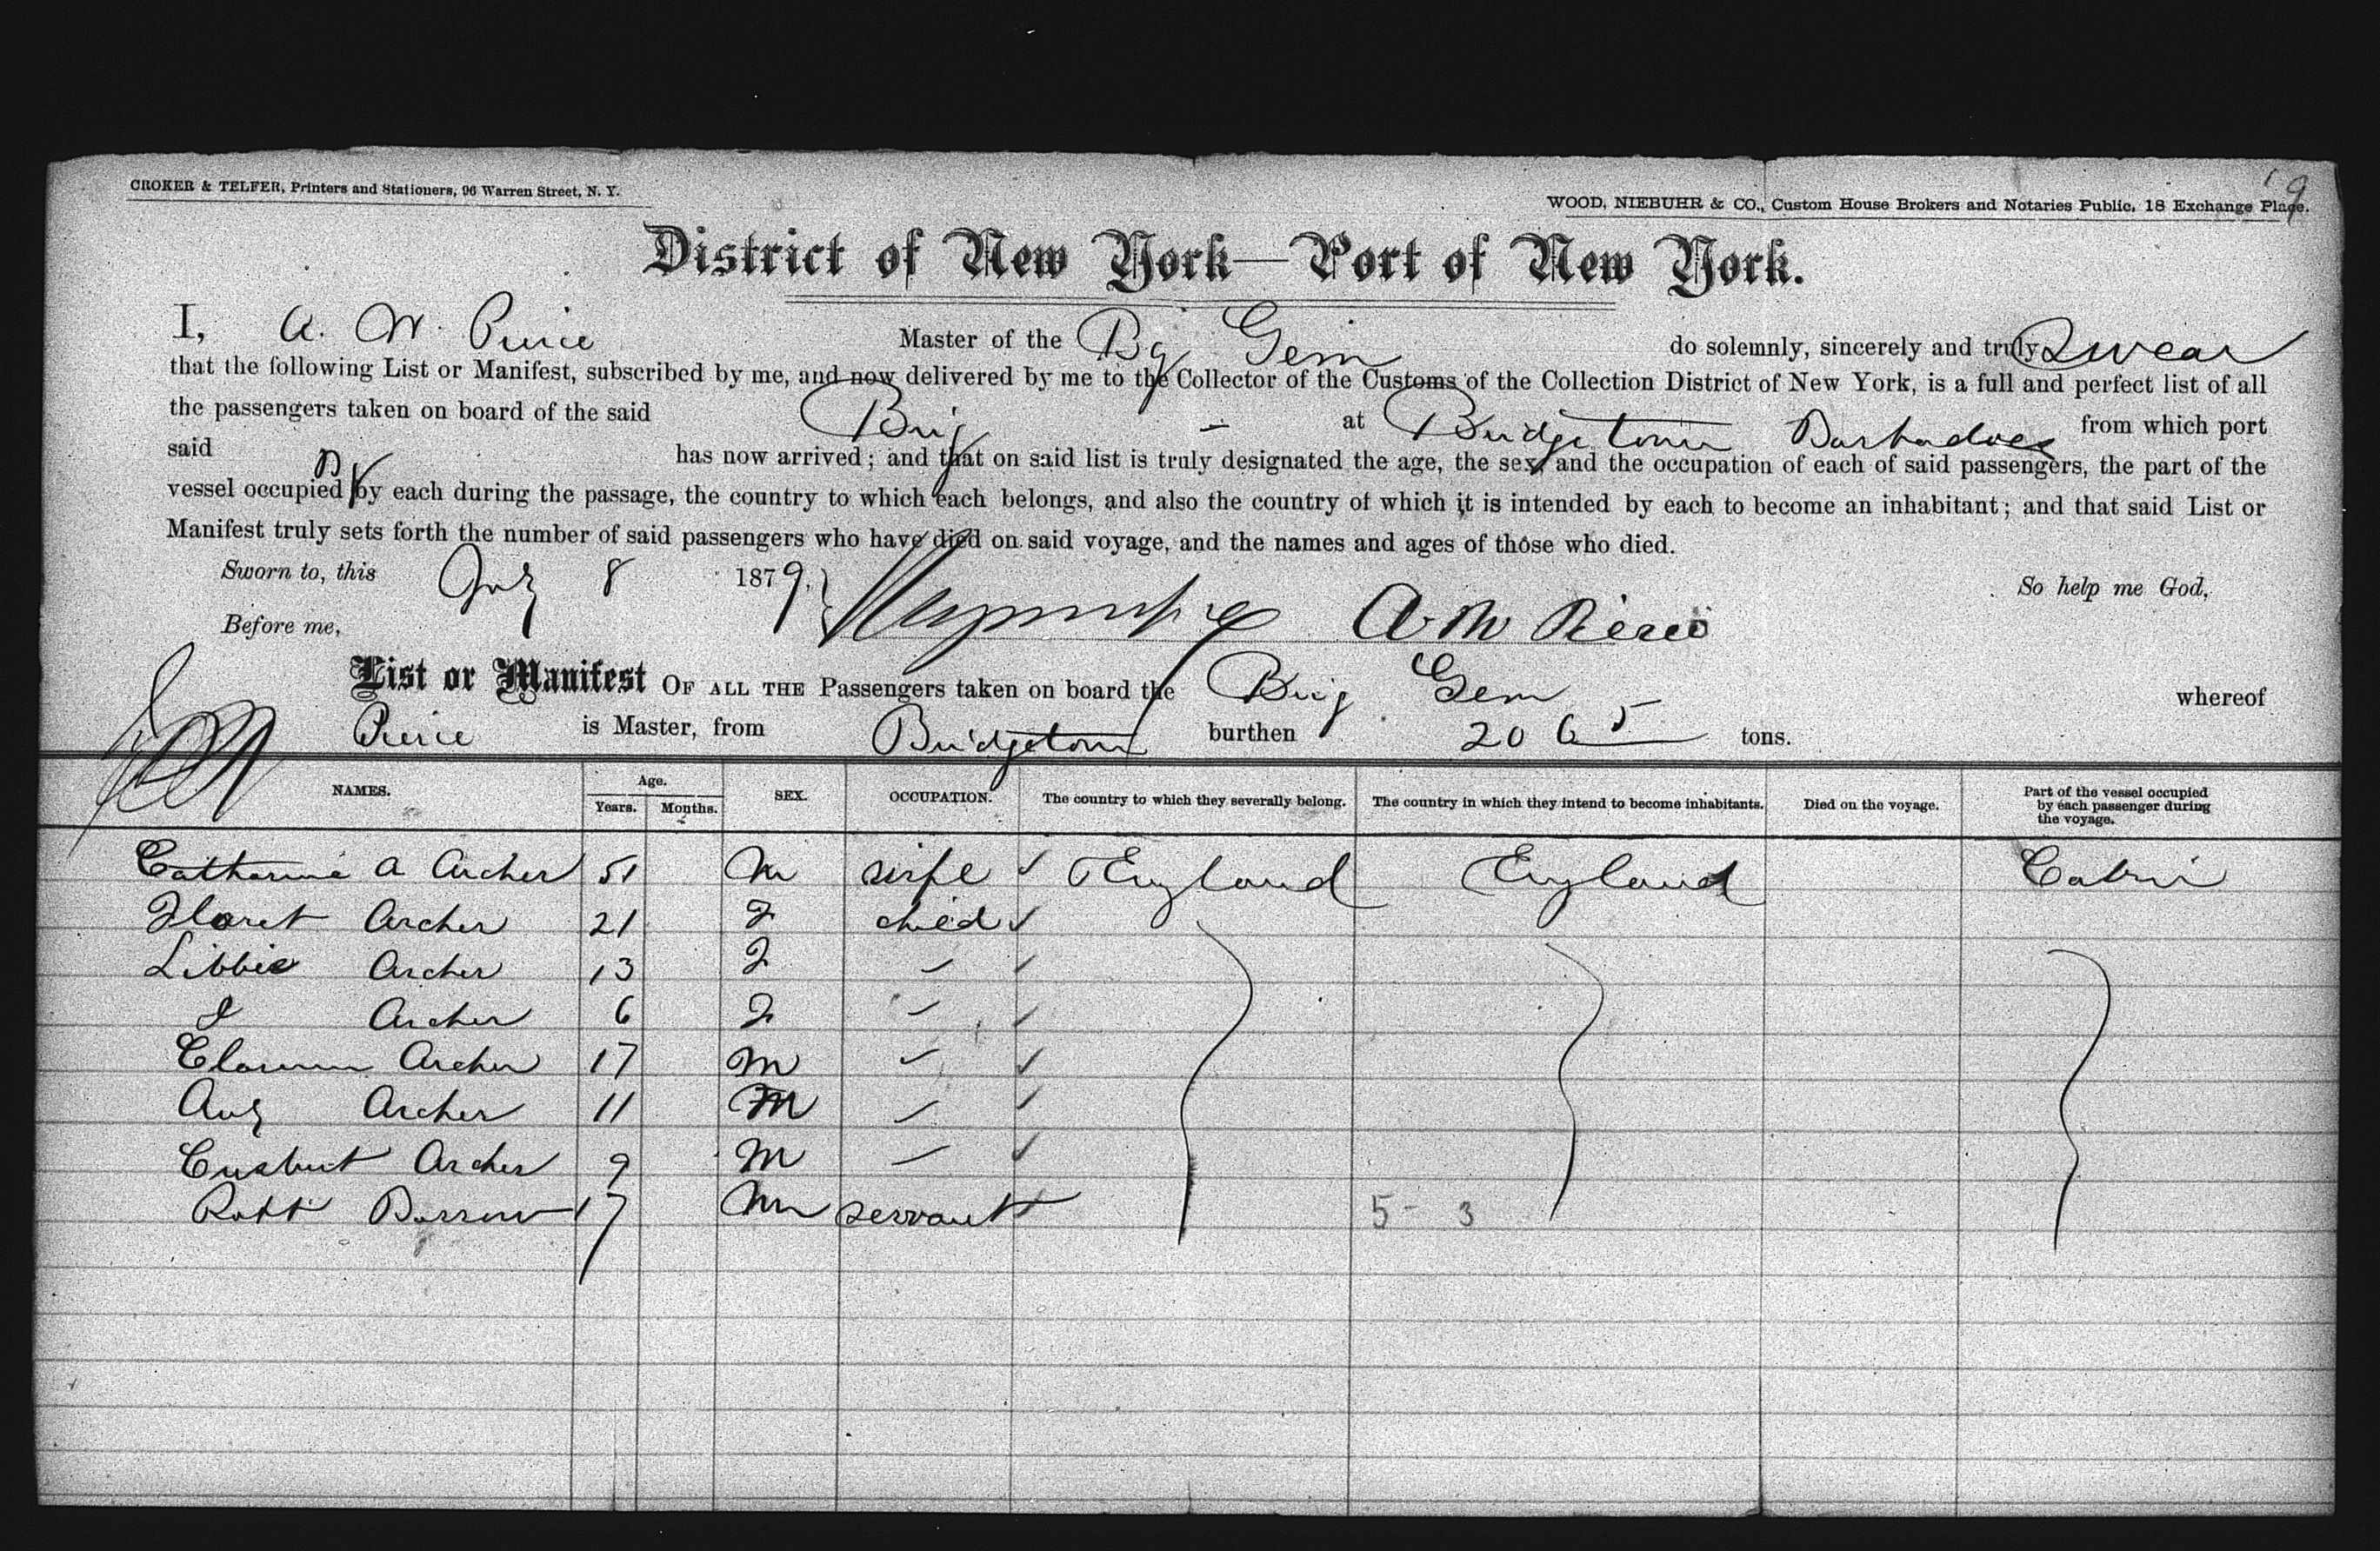 CROKER & TELFER, Printers and Stationers, 96 Warren Street, N. Y.
WOOD, NIEBUHR & CO., Custom House Brokers and Notaries Public, 18 Exchange Place.
District of New York—Port of New York.
I, A. W. Pierce Master of the Bg Gem do solemnly, sincerely and truly Swear
that the following List or Manifest, subscribed by me, and now delivered by me to the Collector of the Customs of the Collection District of New York, is a full and perfect list of all
the passengers taken on board of the said Brig at Bridgetown Barbadoes from which port
said Bg has now arrived; and that on said list is truly designated the age, the sex, and the occupation of each of said passengers, the part of the
vessel occupied by each during the passage, the country to which each belongs, and also the country of which it is intended by each to become an inhabitant; and that said List or
Manifest truly sets forth the number of said passengers who have died on said voyage, and the names and ages of those who died.
Sworn to, this July 8 1879, So help me God,
Before me, A. M Pierce
List or Manifest OF ALL THE Passengers taken on board the Brig Gem whereof
Pierce is Master, from Bridgetown burthen 206 5 tons.
NAMES. Age. Years. Months. SEX. OCCUPATION. The country to which they severally belong. The country in which they intend to become inhabitants. Died on the voyage. Part of the vessel occupied by each passenger during the voyage.
Catharine A Archer 51 M wife England England Cabin
Floret Archer 21 F child
Libbie Archer 13 F
I Archer 6 F
Clarence Archer 17 M
Aug Archer 11 M
Cusbert Archer 9 M
Robt Barrow 17 M servant 5 - 3